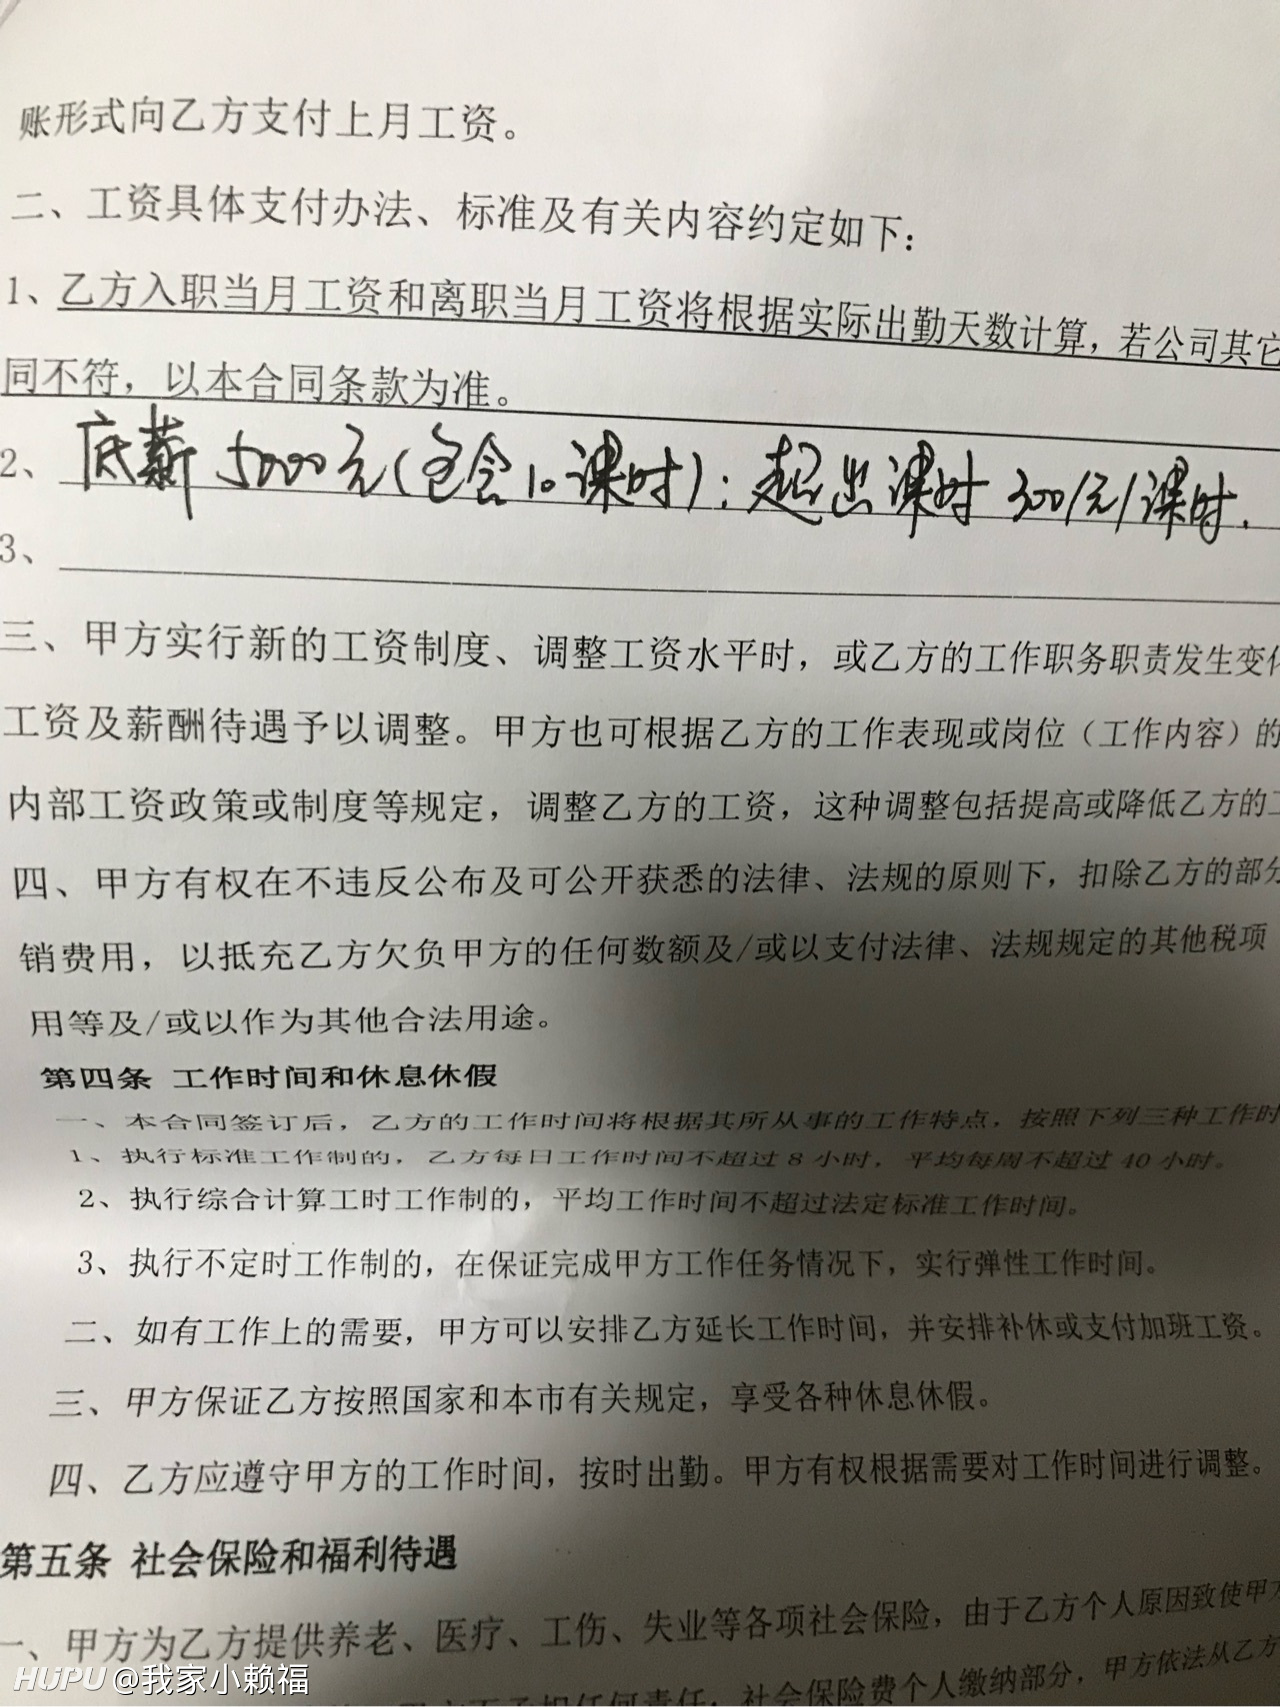 账形式向乙方支付上月工资。
二、工资具体支付办法、标准及有关内容约定如下：
1、乙方入职当月工资和离职当月工资将根据实际出勤天数计算，若公司其它
同不符，以本合同条款为准。
2、底薪5000元(包含10课时)；超出课时 300/元/课时.
3、
三、甲方实行新的工资制度、调整工资水平时，或乙方的工作职务职责发生变化
工资及薪酬待遇予以调整。甲方也可根据乙方的工作表现或岗位（工作内容）的
内部工资政策或制度等规定，调整乙方的工资，这种调整包括提高或降低乙方的工
四、甲方有权在不违反公布及可公开获悉的法律、法规的原则下，扣除乙方的部分
销费用，以抵充乙方欠负甲方的任何数额及/或以支付法律、法规规定的其他税项
用等及/或以作为其他合法用途。
第四条 工作时间和休息休假
一、本合同签订后，乙方的工作时间将根据其所从事的工作特点，按照下列三种工作时
1、执行标准工作制的，乙方每日工作时间不超过8小时，平均每周不超过40小时。
2、执行综合计算工时工作制的，平均工作时间不超过法定标准工作时间。
3、执行不定时工作制的，在保证完成甲方工作任务情况下，实行弹性工作时间。
二、如有工作上的需要，甲方可以安排乙方延长工作时间，并安排补休或支付加班工资。
三、甲方保证乙方按照国家和本市有关规定，享受各种休息休假。
四、乙方应遵守甲方的工作时间，按时出勤。甲方有权根据需要对工作时间进行调整。
第五条 社会保险和福利待遇
一、甲方为乙方提供养老、医疗、工伤、失业等各项社会保险，由于乙方个人原因致使甲方
任何责任；社会保险费个人缴纳部分，甲方依法从乙方
HUPU @我家小赖福